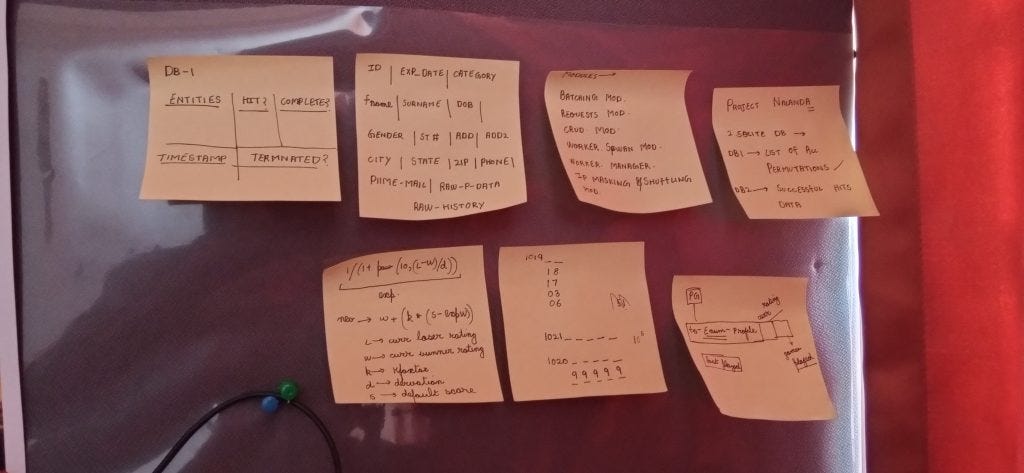 DB-1
ENTITIES | HIT? | COMPLETE?
TIMESTAMP | TERMNATED?
ID | EXP_DATE | CATEGORY
fname | SURNAME | DOB |
GENDER | ST# | ADD | ADD2
CITY | STATE | ZIP | PHONE |
| RAW-P-DATA
RAW-HISTORY
MODULES →
BATCHING MOD.
REQUESTS MOD.
CRUD MOD.
WORKER SPWAN MOD.
WORKER MANAGER.
IP MASKING & SHUFFLING
MOD.
PROJECT NALANDA
2 SQLITE DB →
DB1 → LIST OF ALL
PERMUTATIONS
DB2 → SUCCESSFUL HITS
DATA
1/(1+ pow (10,(L-W)/d))
exp.
new → w + (k * (S - Expw))
L → curr loser rating
w → curr winner rating
k → kfactor
d → deviation
s → default score
1019 _ _
18
17
03
06
1021 _ _ _ _ _ 10⁵
1020 _ _ _ _ _
9 9 9 9 9
PG
rating
curr
to-Enum-Profile
games
played
last played